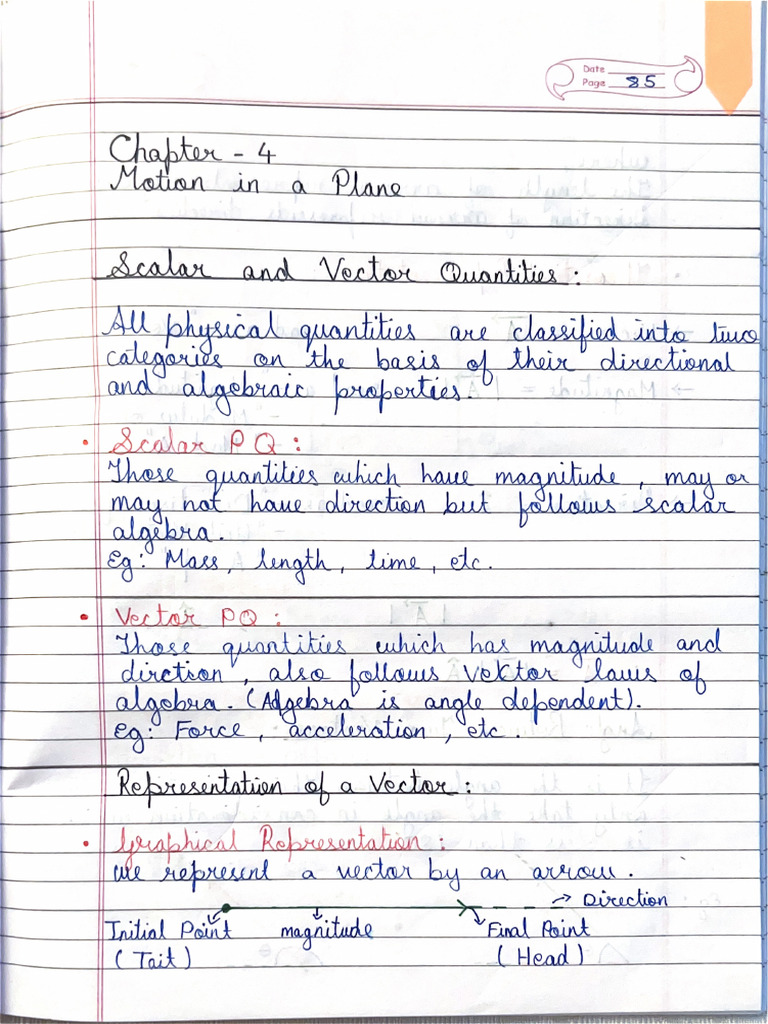 Date
Page 85
Chapter - 4
Motion in a Plane
Scalar and Vector Quantities :
All physical quantities are classified into two
categories on the basis of their directional
and algebraic properties.
• Scalar PQ :
Those quantities which have magnitude , may or
may not have direction but follows scalar
algebra.
Eg: Mass, length, time, etc.
• Vector PQ :
Those quantities which has magnitude and
dirction , also follows vektor laws of
algobra. (Adgebra is angle dependent).
eg: Force , acceleration , etc .
Representation of a Vector :
• Graphical Representation :
we represent a vector by an arrow .
→ Direction
Initial Point magnitude Final Point
(Tait) (Head)